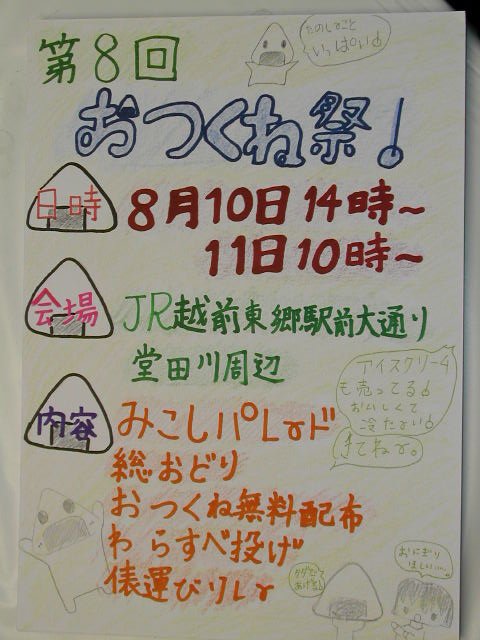 第8回
たのしいこと
いっぱい!
おつくね祭!
日時
8月10日14時~
11日10時~
会場
JR越前東郷駅前大通り
堂田川周辺
内容
みこしパレード
総おどり
おつくね無料配布
わらすべ投げ
俵運びリレー
アイスクリーム
も売ってる!
おいしくて
冷たい!
きてねー。
おにぎり
ほしいー。